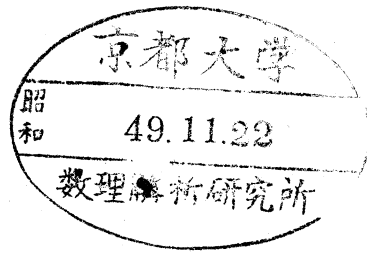 京都大学
昭和
49.11.22
数理解析研究所